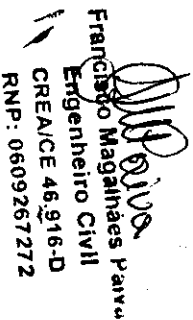 Francisco Magalhães Paiva
Engenheiro Civil
CREA/CE 46.916-D
RNP: 0609267272